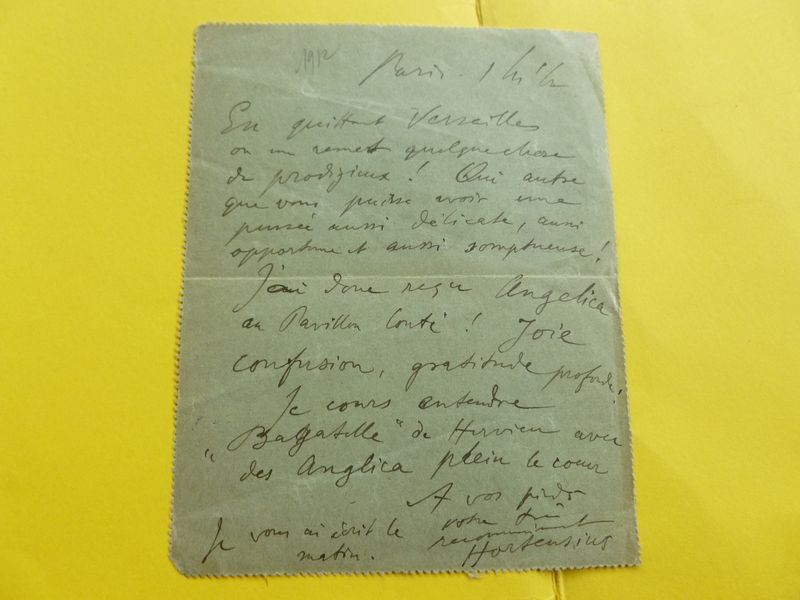 1912
Paris. 1 h ½
En quittant Versailles
on me remet quelque chose
de prodigieux ! Qui autre
que vous puisse avoir une
pensée aussi délicate, aussi
opportune et aussi somptueuse !
J'ai donc reçu Angelica
au Pavillon Conti ! Joie
confusion, gratitude profonde !
Je cours entendre
"Bagatelle" de Hervieu avec
des Anglica plein le cœur
A vos pieds
votre très
reconnaissant
Hortensius
Je vous ai écrit le
matin.